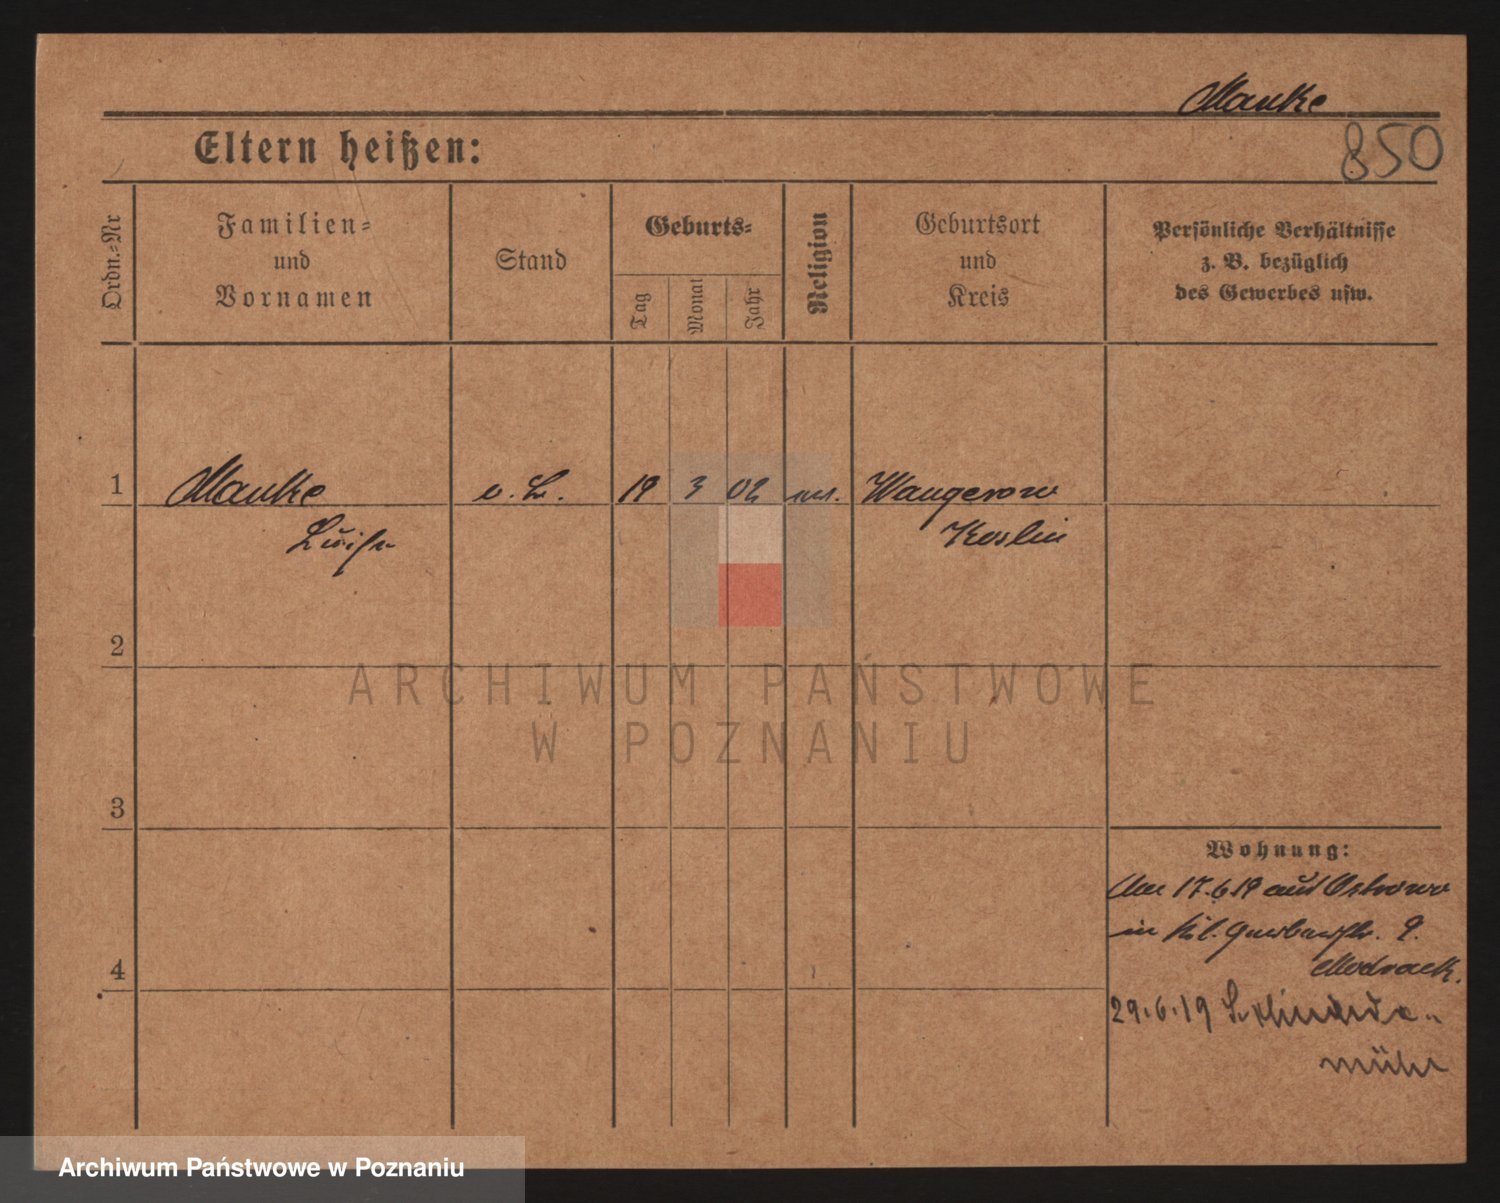 Manke
850
Eltern heißen:
Ordn.=Nr
Familien=
und
Vornamen
Stand
Geburts=
Tag
Monat
Jahr
Religion
Geburtsort
und
Kreis
Persönliche Verhältnisse
z. B. bezüglich
des Gewerbes usw.
1 Manke 19 3 02 Wangerow
Luise Koslin
2
ARCHIWUM PAŃSTWOWE
W POZNANIU
3
Wohnung:
17.6.19 aus Ostrowo
in 9.
Modrack.
4
29.6.19 Schneide-
mühl
Archiwum Państwowe w Poznaniu